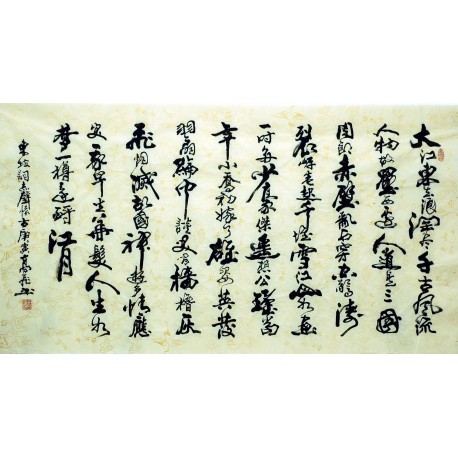 大江東去浪淘盡千古風流
人物故壘西邊人道是三國
周郎赤壁亂石穿空驚濤
裂岸捲起千堆雪江山如畫
一時多少豪傑遙想公瑾當
年小喬初嫁了雄姿英發
羽扇綸巾談笑間檣櫓灰
飛煙滅故國神遊多情應
笑我早生華髮人生如
夢一樽還酹江月
東坡詞赤壁懷古庚寅高